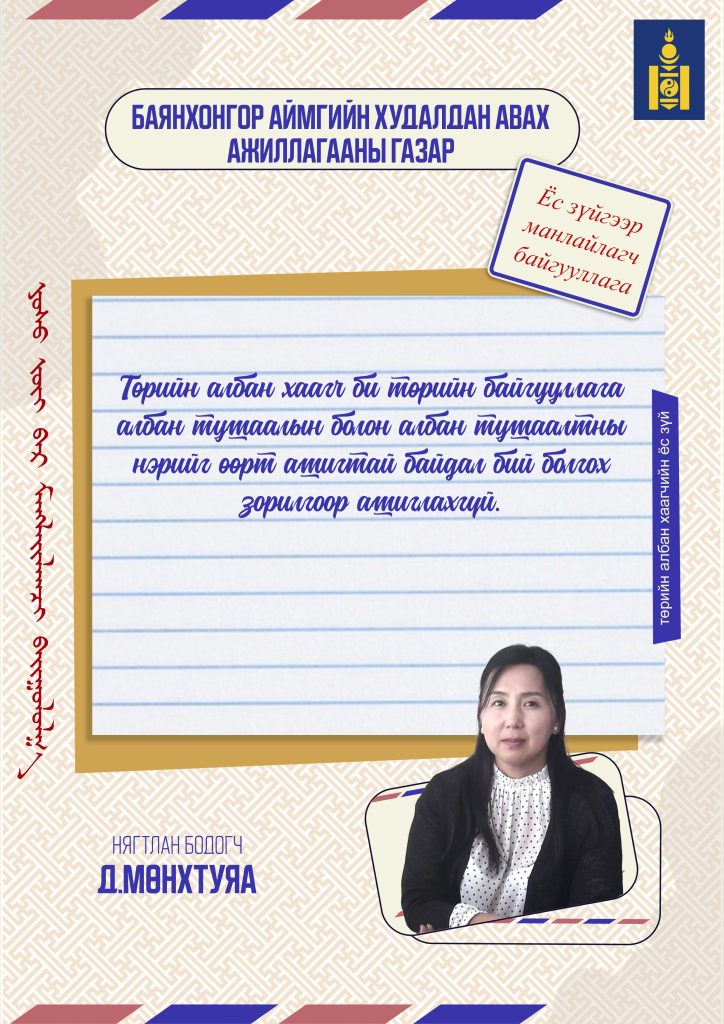 БАЯНХОНГОР АЙМГИЙН ХУДАЛДАН АВАХ
АЖИЛЛАГААНЫ ГАЗАР
Ёс зүйгээр
манлайлагч
байгууллага
Төрийн албан хаагч би төрийн байгууллага
албан тушаалын болон албан тушаалтны
нэрийг өөрт ашигтай байдал бий болгох
зорилгоор ашиглахгүй.
төрийн албан хаагчийн ёс зүй
НЯГТЛАН БОДОГЧ
Д.МӨНХТУЯА